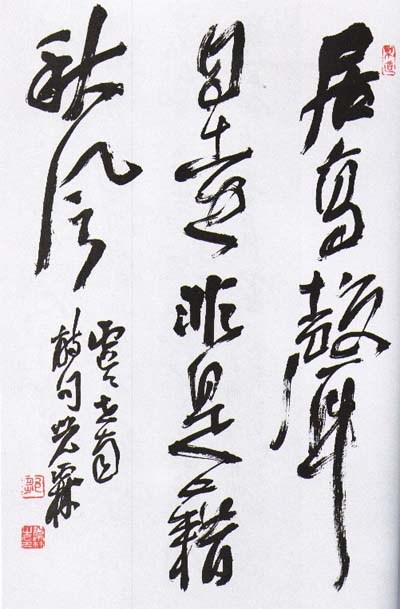 居高聲
自遠非是藉
秋風
虞世南
詩句